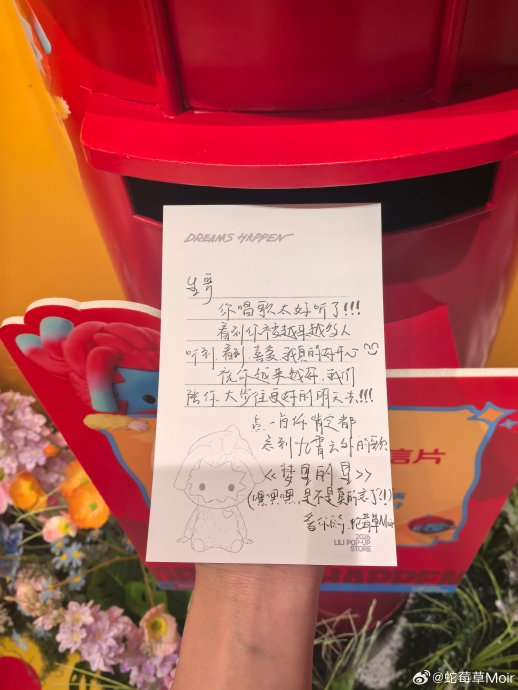 DREAMS HAPPEN
生哥
你唱歌太好听了!!!
看到你被越来越多人
听到 看到 喜爱,我真的好开心
祝你越来越好,我们
陪你大步往更好的明天去!!!
点一首你肯定都
忘到九霄云外的歌
<<梦里的星>>
(嘿嘿嘿,是不是真的忘了!!)
爱你的 蛇莓草Moir
2026
LILI POP-UP
STORE
信片
@蛇莓草Moir